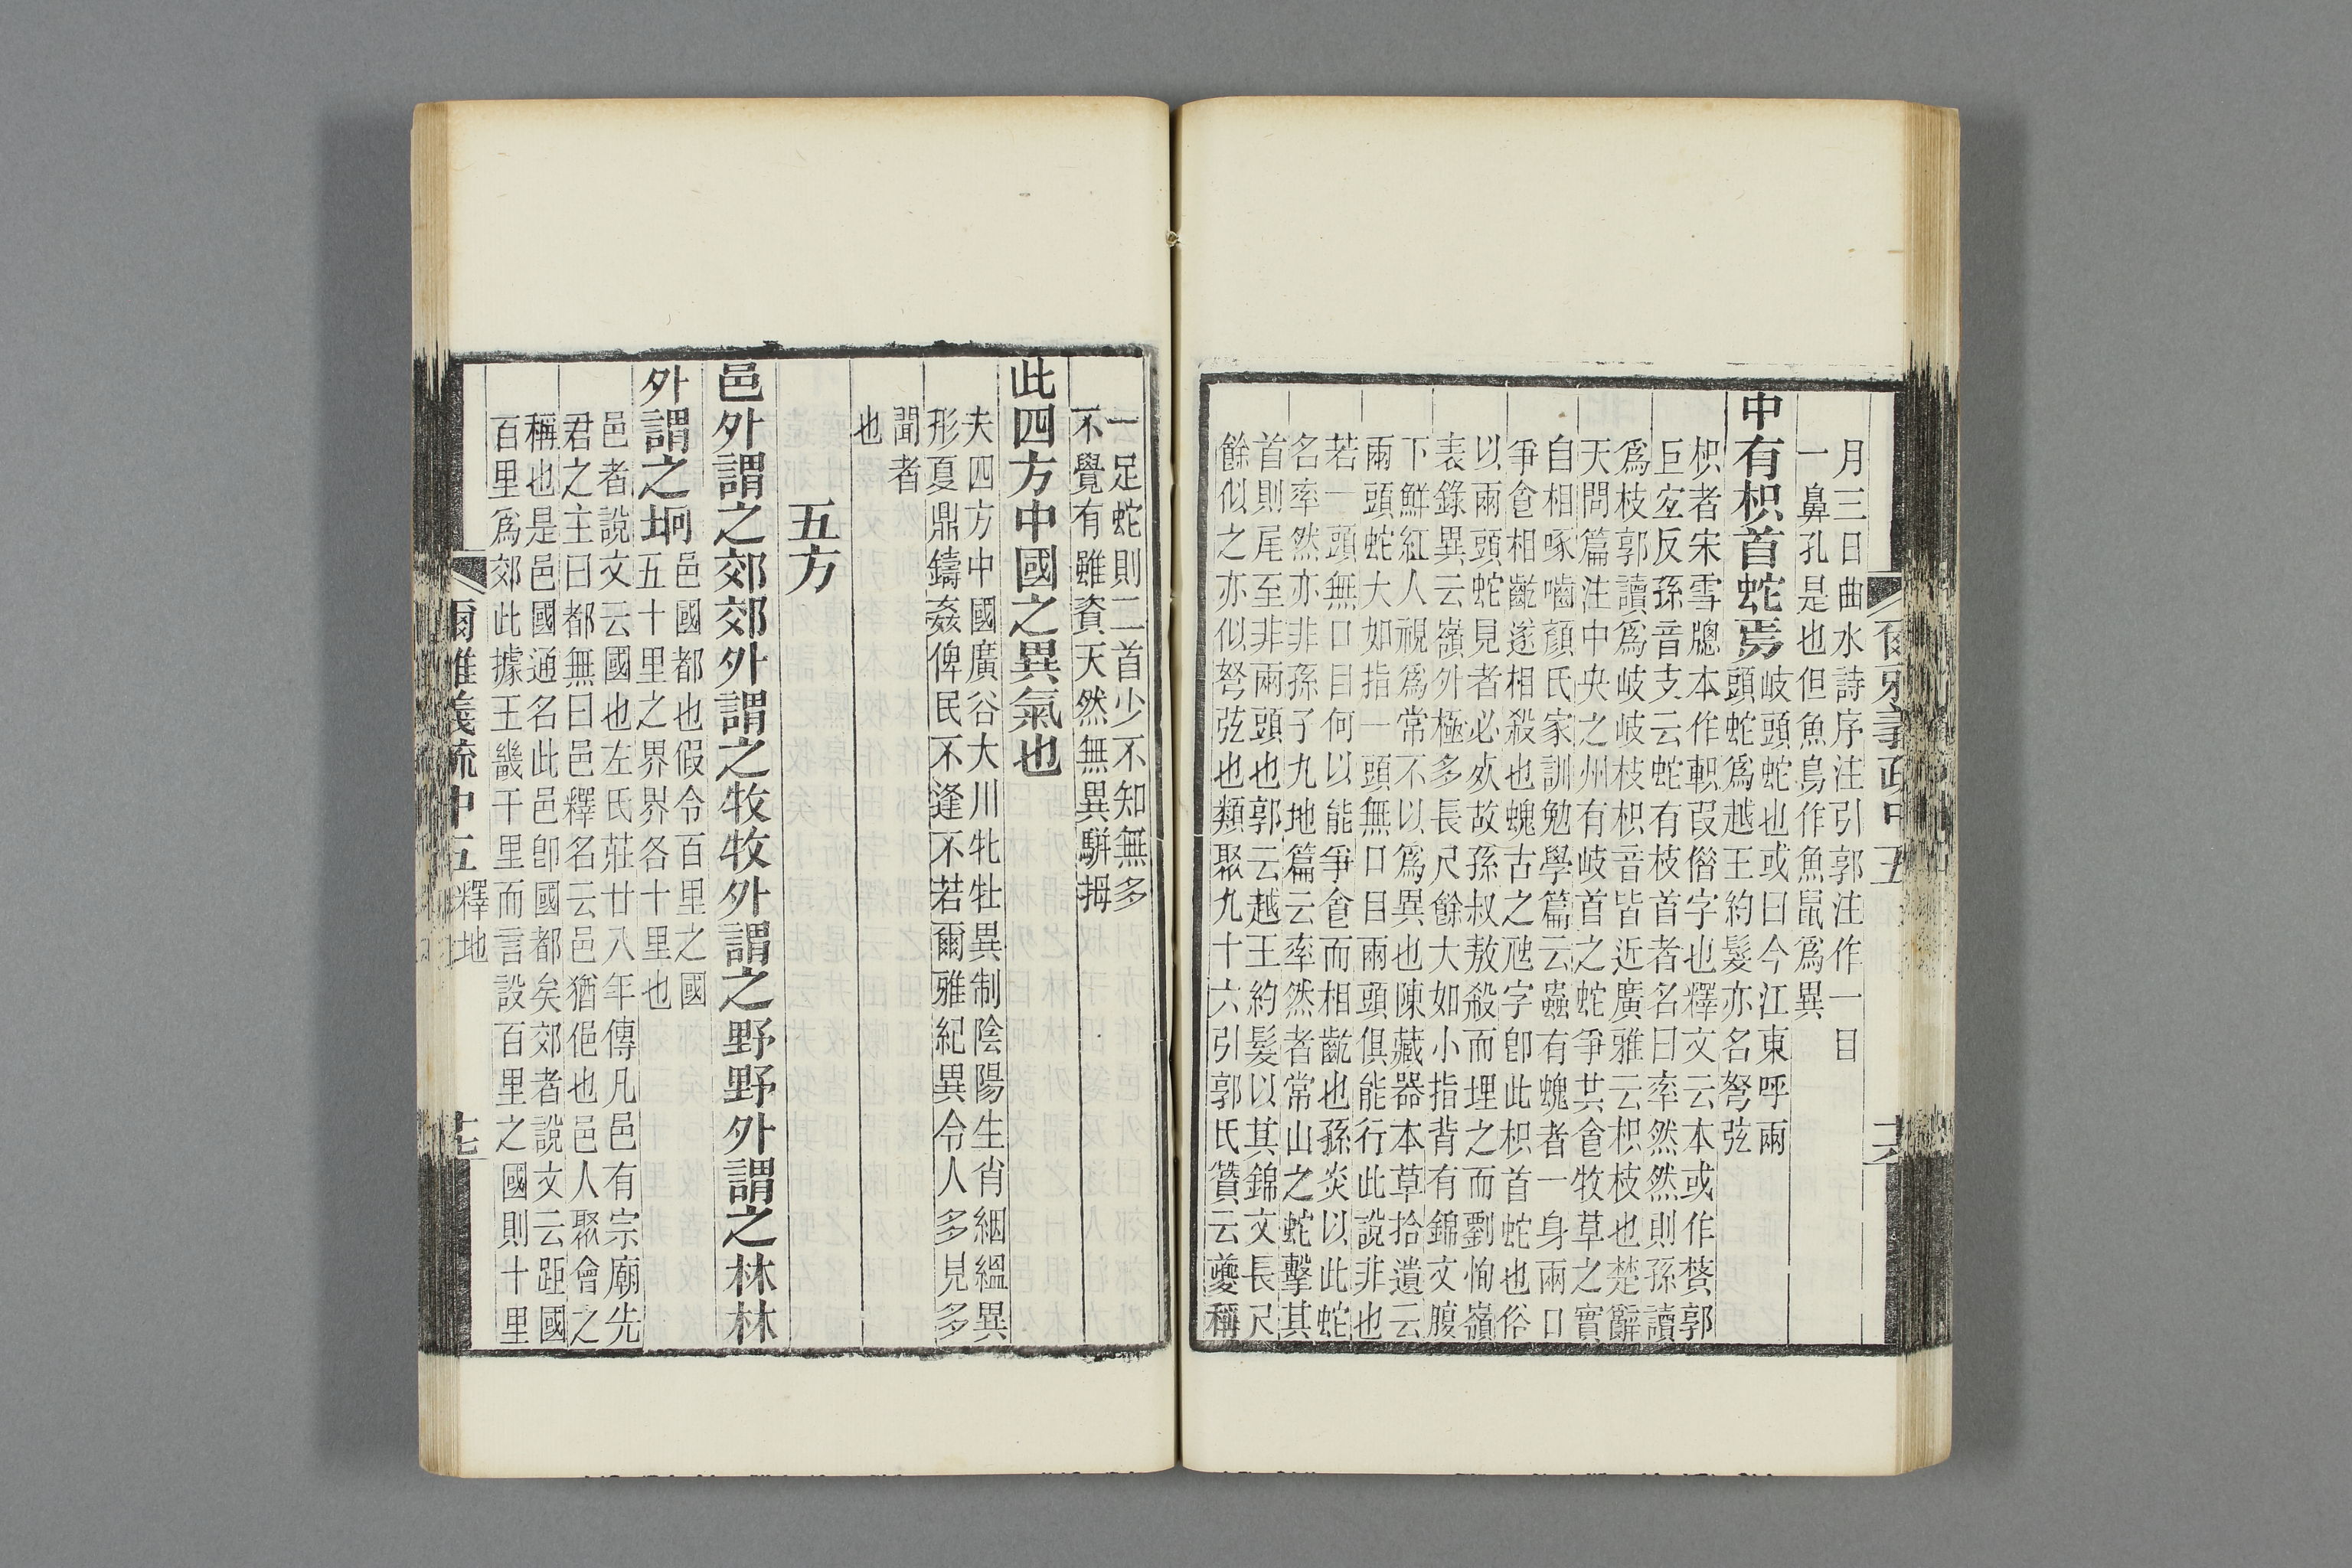 爾雅義疏中五
十六
月三日曲水詩序注引郭注作一目
一鼻孔是也但魚鳥作魚鼠爲異
中有枳首蛇焉
岐頭蛇也或曰今江東呼兩
頭蛇爲越王約髮亦名弩弦
枳者宋雪牕本作軹叚借字也釋文云本或作䅩郭
巨宜反孫音支云蛇有枝首者名曰率然然則孫讀
爲枝郭讀爲岐岐枝枳音皆近廣雅云枳枝也楚辭
天問篇注中央之州有岐首之蛇爭共食牧草之實
自相啄嚙顏氏家訓勉學篇云蟲有螝者一身兩口
爭食相齕遂相殺也螝古之虺字卽此枳首蛇也俗
以兩頭蛇見者必死故孫叔敖殺而埋之而劉恂嶺
表錄異云嶺外極多長尺餘大如小指背有錦文腹
下鮮紅人視爲常不以爲異也陳藏器本草拾遺云
兩頭蛇大如指一頭無口目兩頭俱能行此說非也
若一頭無口目何以能爭食而相齕也孫炎以此蛇
名率然亦非孫子九地篇云率然者常山之蛇擊其
首則尾至非兩頭也郭云越王約髮以其錦文長尺
餘似之亦似弩弦也類聚九十六引郭氏贊云夔稱
一足蛇則二首少不知無多
不覺有雖資天然無異駢拇
此四方中國之異氣也
夫四方中國廣谷大川牝牡異制陰陽生肖絪縕異
形夏鼎鑄姦俾民不逢不若爾雅紀異令人多見多
聞者
也
五方
邑外謂之郊郊外謂之牧牧外謂之野野外謂之林林
外謂之坰
邑國都也假令百里之國
五十里之界界各十里也
邑者說文云國也左氏莊廿八年傳凡邑有宗廟先
君之主曰都無曰邑釋名云邑猶俋也邑人聚會之
稱也是邑國通名此邑卽國都矣郊者說文云距國
百里爲郊此據王畿千里而言設百里之國則十里
爾雅義疏中五
釋地
十七